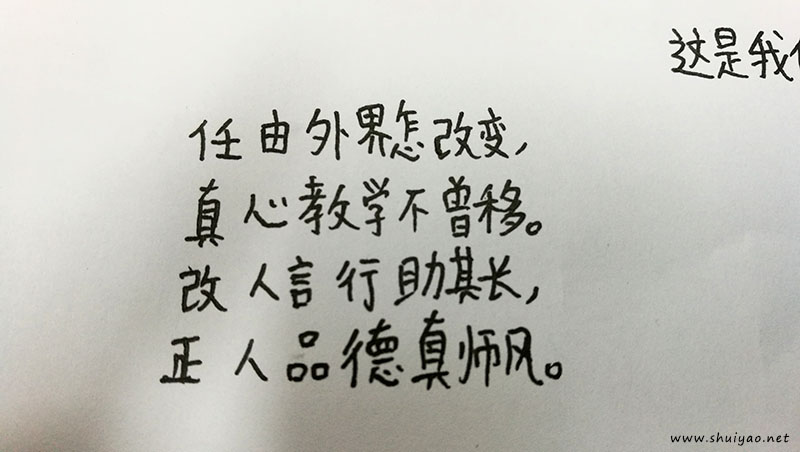 这是我
任由外界怎改变，
真心教学不曾移。
改人言行助其长，
正人品德真师风。
www.shuiyao.net